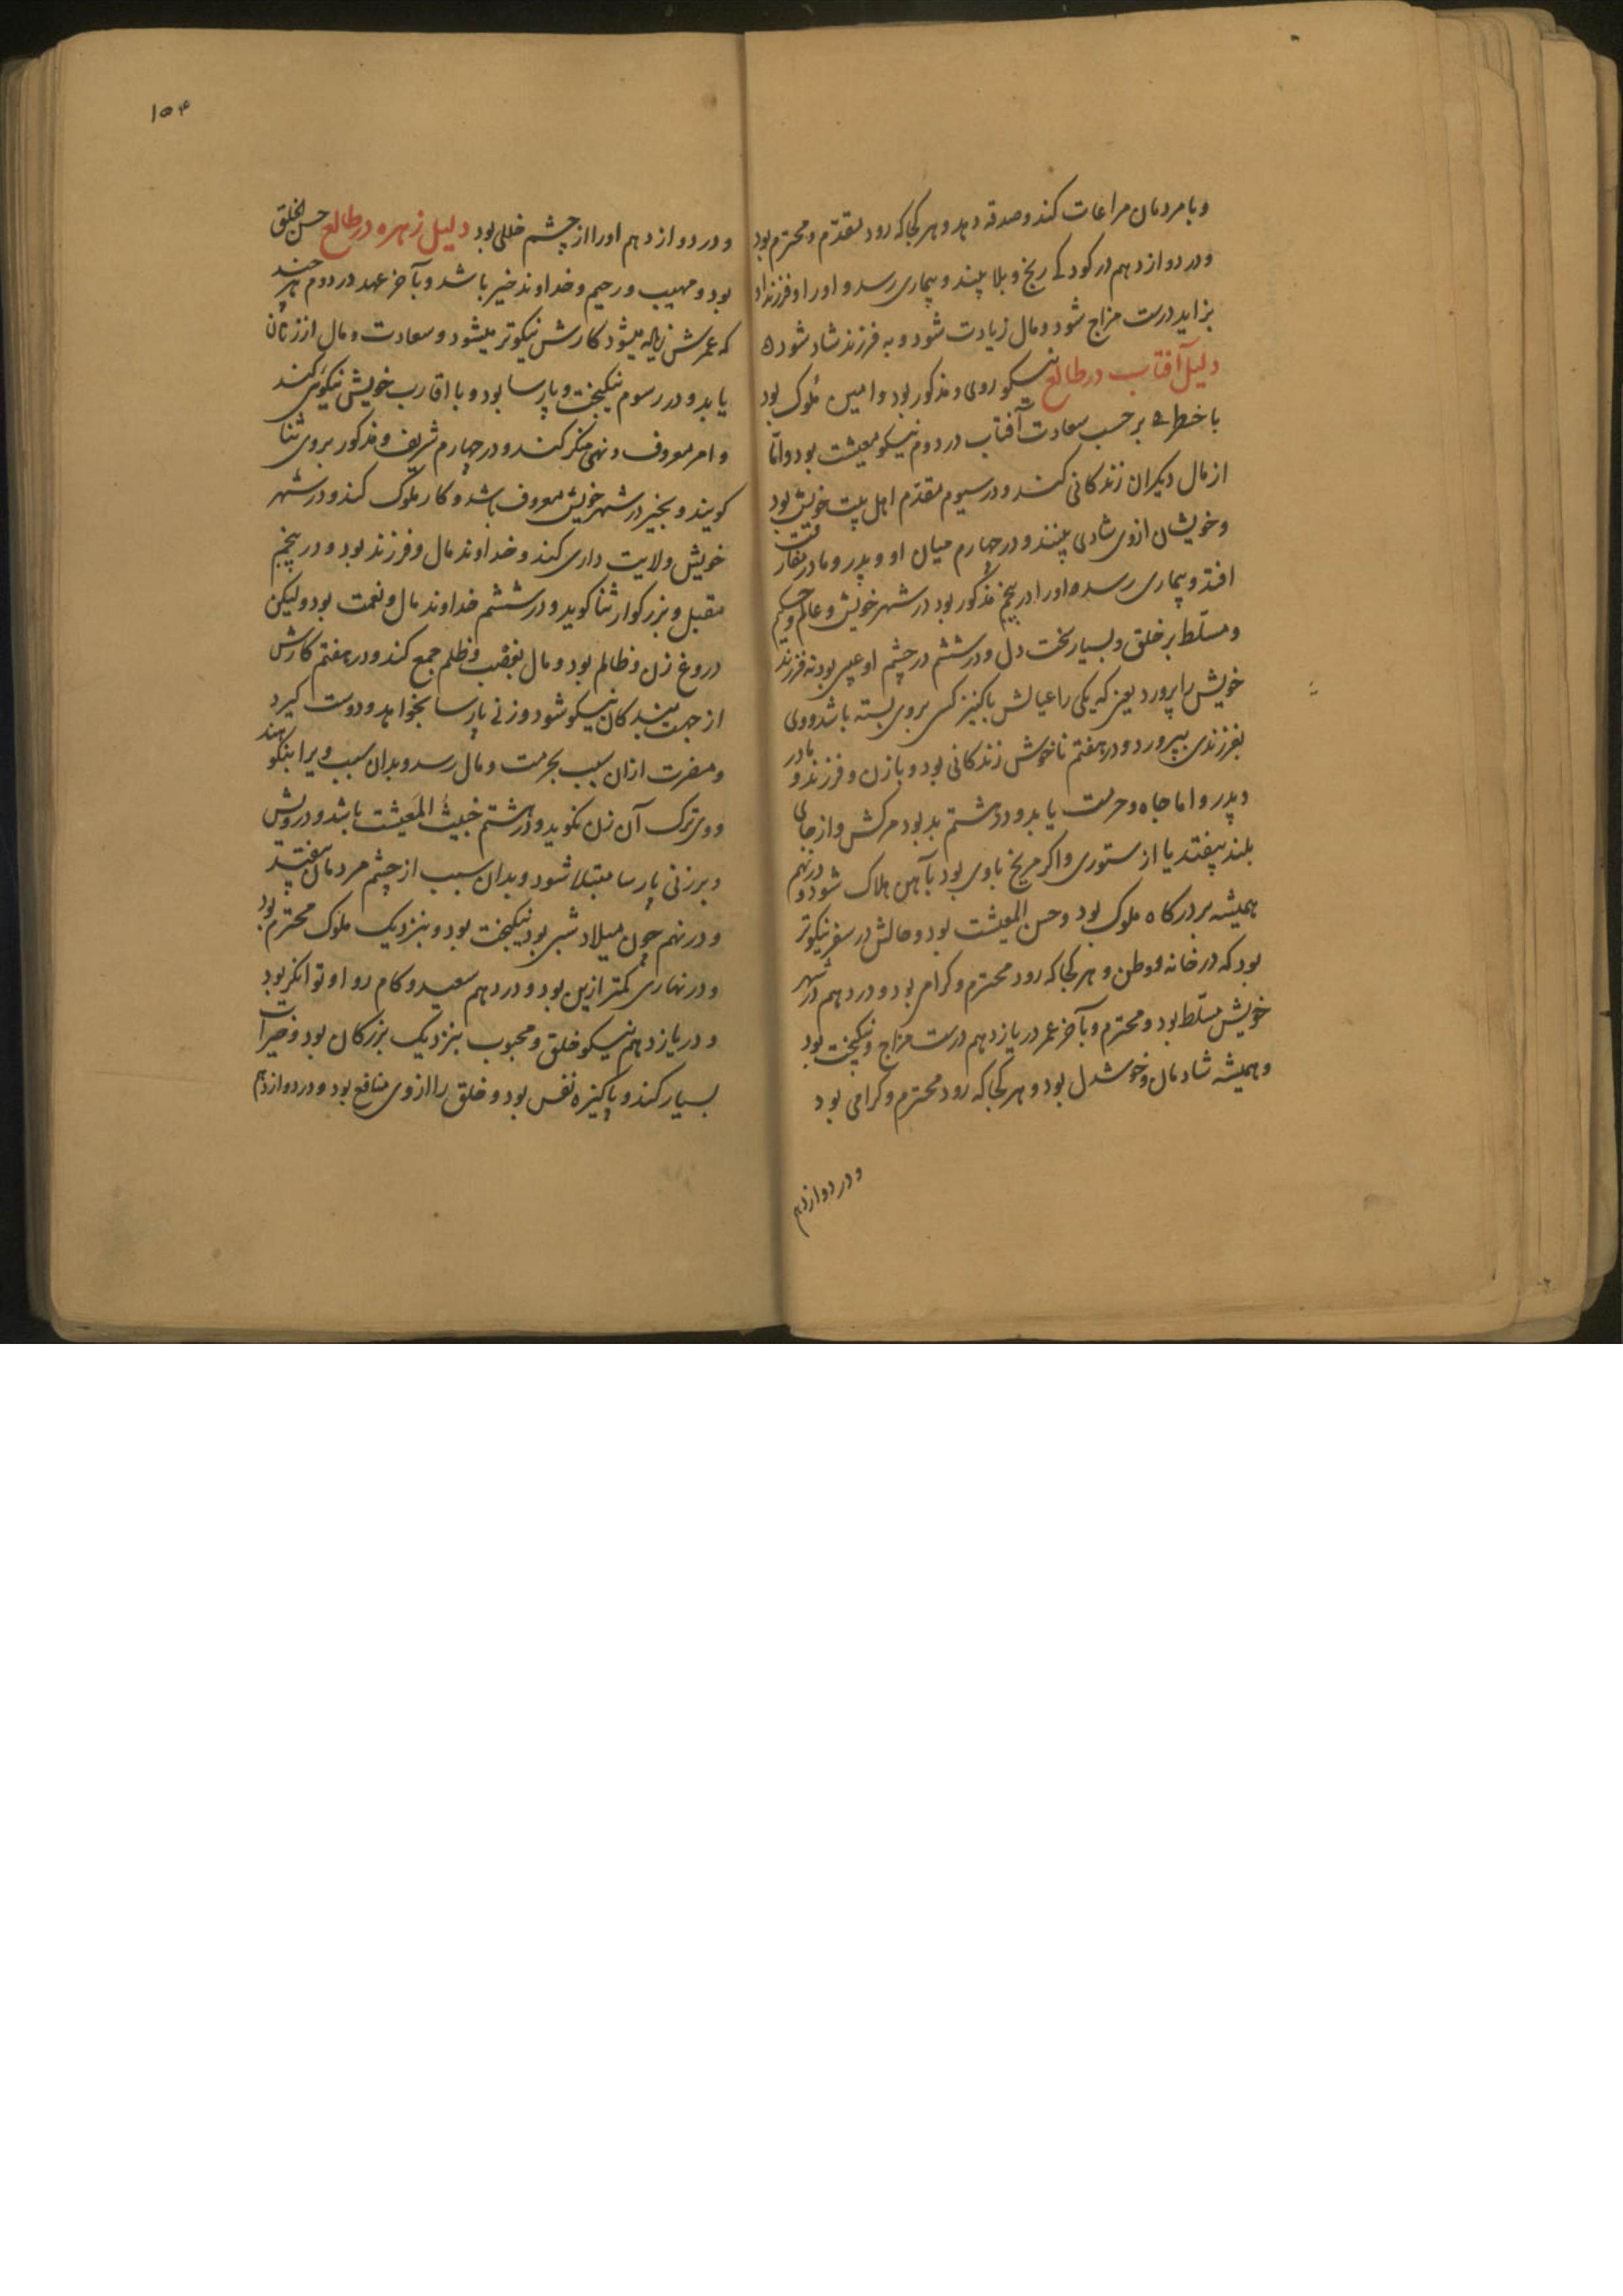 وبا مردمان مراعات کند و صدقه دهد و هر کجا که رود مقدّم و محترم بود
و در دوازدهم در کودکے رنج و بلا بیند و بیماری رسد و اورا و فرزند او
بزاید درست مزاج شود و مال زیادت شود و به فرزند شاد شود ه
دلیل آفتاب در طالع نیکو روی و مذکور بود و امین ملوک بود
با خطر بر حسب سعادت آفتاب در دوم نیکو معیشت بود و امّا
از مال دیکران زندکانی کند و در سیوم مقدّم اهل بیت خویش بود
و خویشان ازوی شادی بینند و در چهارم میان او و پدر و مادر مفارقت
افتد و بیماری رسد و اورا در پنجم مذکور بود در شهر خویش و عالم و حکیم
و مسلّط بر خلق و بسیار سخت دل و در ششم در چشم او عیبی بود نه فرزند
خویش را پرورد یعنی که یکی را عیالش با کنیز کسی بروی بسته باشد و وی
بفرزندی بپرورد و در هفتم ناخوش زندکانی بود و با زن و فرزند و مادر
و پدر و اما جاه و حرمت یابد و در هشتم بد بود مرکش و از جای
بلند بیفتد یا از ستوری و اکر مریخ با وی بود بآهن هلاک شود و در نهم
همیشه بر درکاه ملوک بود و حسن المعیشت بود و حالش در سفر نیکوتر
بود که در خانه و وطن و هر کجا که رود محترم و کرامی بود و در دهم در شهر
خویش مسلّط بود و محترم و بآخر عمر در یازدهم درست مزاج و نیکبخت بود
و همیشه شادمان و خوشدل بود و هر کجا که رود محترم و کرامی بود
و در دوازدهم
۱۵۴
و در دوازدهم اورا از چشم خللی بود دلیل زهره در طالع حسن الخلق
بود و مهیب و رحیم و خداوند خیر باشد و بآخر عهد در دوم هر چند
که عمرش زیاده میشود کارش نیکوتر میشود و سعادت و مال از زنان
یابد و در رسوم نیکبخت و پارسا بود و با اقارب خویش نیکوئی کند
و امر معروف و نهی منکر کند و در چهارم شریف و مذکور بروی ثنا
کویند و بخیر در شهر خویش معروف باشد و کار ملوک کند و در شهر
خویش ولایت داری کند و خداوند مال و فرزند بود و در پنجم
مقبل و بزرکوار ثنا کوید و در ششم خداوند مال و نعمت بود ولیکن
دروغ زن و ظالم بود و مال بغضب و ظلم جمع کند و در هفتم کارش
از جهت بندکان نیکو شود و زنے پارسا بخواهد و دوست کیرد
و مضرت ازان سبب بحرمت و مال رسد و بدان سبب ویرا بنکوهند
و وی ترک آن زن نکوید و در هشتم خبیث المَعیشت باشد و درویش
و برزنی پارسا مبتلا شود و بدان سبب از چشم مردمان بیفتد
و در نهم چون میلاد شبی بود نیکبخت بود و بنزدیک ملوک محترم بود
و در نهاری کمتر ازین بود و در دهم سعید و کام روا و توانکر بود
و در یازدهم نیکو خلق و محبوب بنزدیک بزرکان بود و خیرات
بسیار کند و پاکیزه نفس بود و خلق را ازوی منافع بود و در دوازدهم